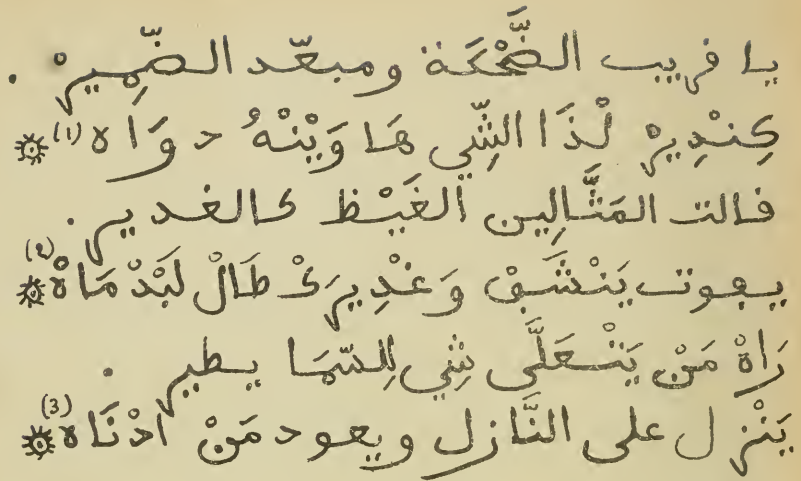 يا قريب الضَّحْكَة ومبعّد الضّمِيرْ .
كِنْدِيرْ لْذَا الشِّي هَا وَيْنْهُ دوَاه (1) ۞
قالت المَثَّالِين الغَيْظ كالغدير .
يفوت يَنْشَفْ وَغْدِيرَكْ طَالْ لَبَدْ مَاهْ (2) ۞
رَاهْ مَنْ يَتْعَلَّى شِي لِلسّمَا يطير .
يَنْزل على النَّازل ويعود مَنْ ادْنَاه (3) ۞